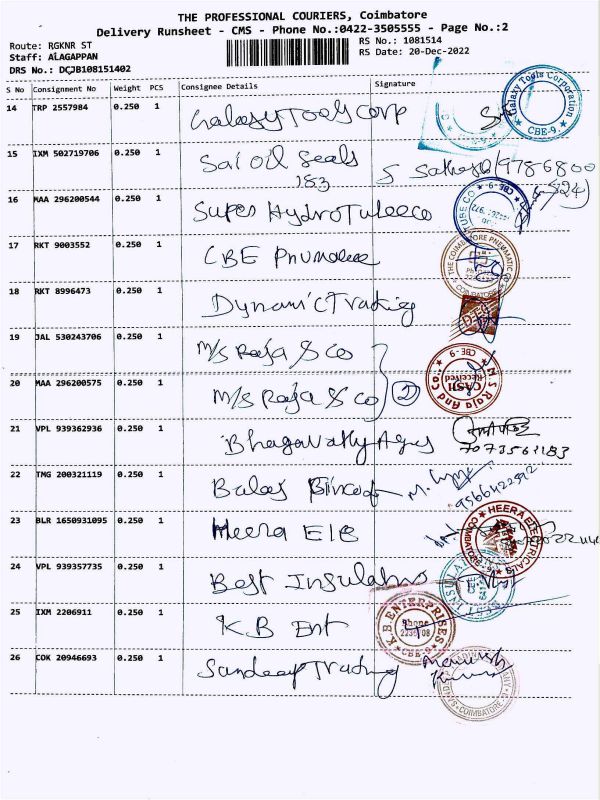 THE PROFESSIONAL COURIERS, Coimbatore
Delivery Runsheet - CMS - Phone No.:0422-3505555 - Page No.:2
Route: RGKNR ST
RS No.: 1081514
Staff: ALAGAPPAN
RS Date: 20-Dec-2022
DRS No.: DCJB108151402
S No Consignment No Weight PCS Consignee Details Signature
14 TRP 2557984 0.250 1 Galaxy Tools Corp
Galaxy Tools Corporation
CBE-9.
15 IXM 502719706 0.250 1 Sai Oil Seals
183
16 MAA 296200544 0.250 1 Super HydroTubeco
17 RKT 9003552 0.250 1 CBE
THE COIMBATORE PNEUMATIC CO
COIMBATORE
18 RKT 8996473 0.250 1 Dynamic Trading
19 JAL 530243706 0.250 1 M/S Raja & Co
20 MAA 296200575 0.250 1 M/S Raja & Co 2
M S Raja And Co.,
CASH
Received
CBE-9
21 VPL 939362936 0.250 1
7073561183
22 TMG 200321119 0.250 1
23 BLR 1650931095 0.250 1 Heera Ele
HEERA ELECTRICALS
24 VPL 939357735 0.250 1 Best
25 IXM 2206911 0.250 1 K.B Ent
K.B.ENTERPRISES
Phone
CBE-9
26 COK 20946693 0.250 1 Sandeep Trading
COIMBATORE